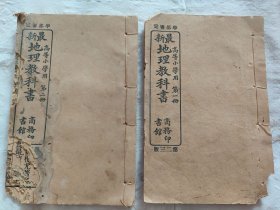 學部審定
最新地理教科書
高等小學用 第一冊
商務印書館
學部審定
最新地理教科書
高等小學用 第二冊
商務印書館